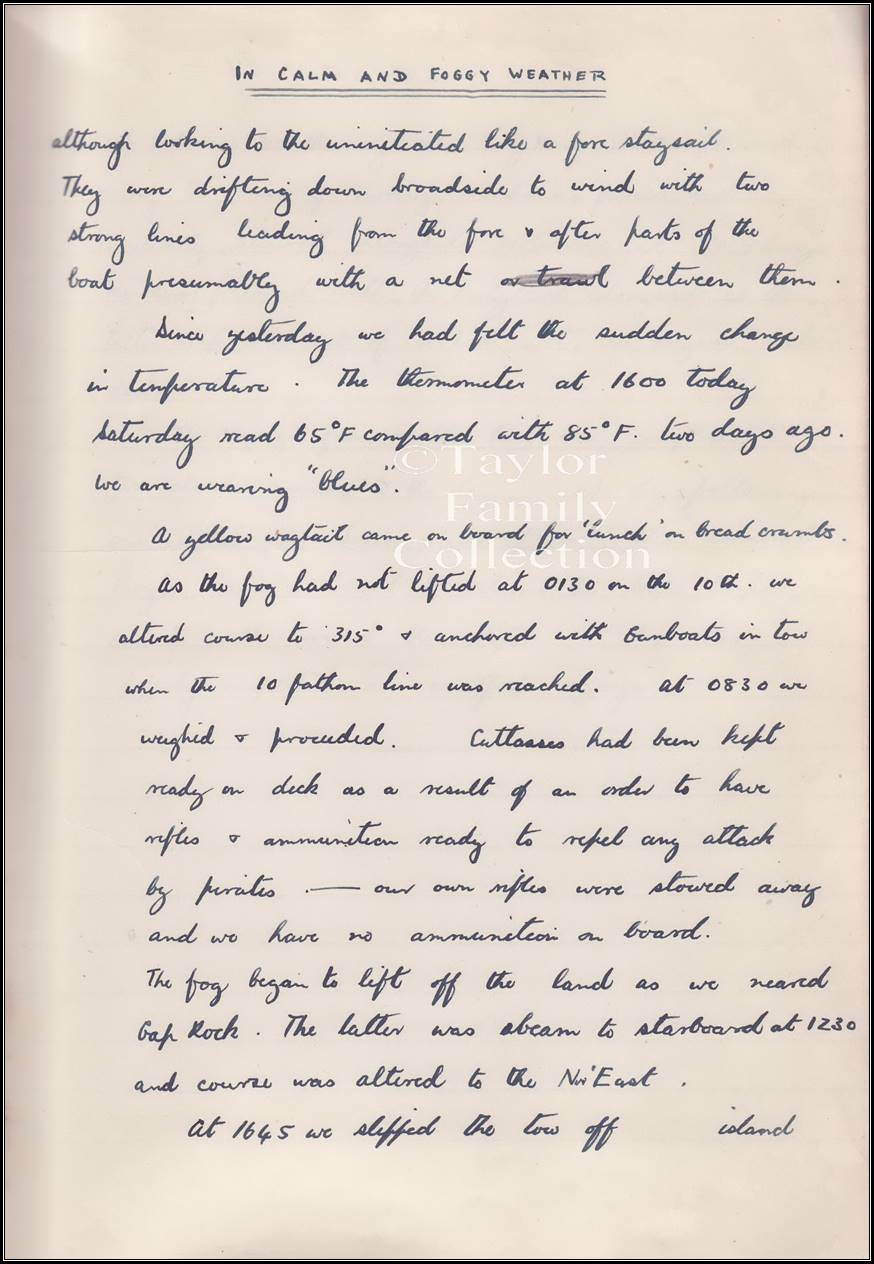 IN CALM AND FOGGY WEATHER
although looking to the uninitiated like a fore staysail.
They were drifting down broadside to wind with two
strong lines leading from the fore & after parts of the
boat presumably with a net or trawl between them.
Since yesterday we had felt the sudden change
in temperature. The thermometer at 1600 today
Saturday read 65°F compared with 85°F. two days ago.
We are wearing "blues".
A yellow wagtail came on board for 'lunch' on bread crumbs.
As the fog had not lifted at 0130 on the 10th. we
altered course to 315° & anchored with Gunboats in tow
when the 10 fathom line was reached. At 0830 we
weighed & proceeded. Cutlasses had been kept
ready on deck as a result of an order to have
rifles & ammunition ready to repel any attack
by pirates. — our own rifles were stowed away
and we have no ammunition on board.
The fog began to lift off the land as we neared
Gap Rock. The latter was abeam to starboard at 1230
and course was altered to the Nor'East.
At 1645 we slipped the tow off island
©Taylor
Family
Collection